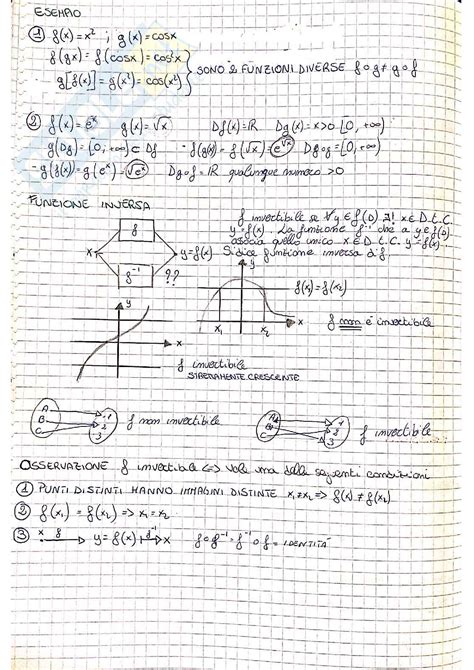 ESEMPIO
① f(x) = x² ; g(x) = cosx
f(gx) = f(cosx) = cos²x
g[f(x)] = g(x²) = cos(x²)
SONO 2 FUNZIONI DIVERSE f∘g ≠ g∘f
② f(x) = eˣ g(x) = √x Df(x) = ℝ Dg(x) = x>0 [0, +∞)
g(Dg) = [0, +∞) ⊂ Df - f(g(x)) = f(√x) = e^√x Df∘g = [0, +∞)
- g(f(x)) = g(eˣ) = √eˣ Dg∘f = ℝ qualunque numero >0
FUNZIONE INVERSA
f invertibile se ∀y∈f(D) ∃! x∈D t.c.
y = f(x). La funzione f⁻¹ che a y∈f(D)
associa quello unico x∈D t.c. y = f(x)
Si dice funzione inversa di f.
f
x
y = f(x)
f⁻¹ ??
y
f(x₁) = f(x₂)
x₁ x₂ x
f non è invertibile
y
x
f invertibile
STRETTAMENTE CRESCENTE
A B C 1 2 3 f non invertibile
A B C 1 2 3 f invertibile
OSSERVAZIONE f invertibile <=> vale una delle seguenti condizioni
① PUNTI DISTINTI HANNO IMMAGINI DISTINTE x₁≠x₂ => f(x₁) ≠ f(x₂)
② f(x₁) = f(x₂) => x₁ = x₂
③ x f y = f(x) f⁻¹ x f∘f⁻¹ = f⁻¹∘f = IDENTITÀ